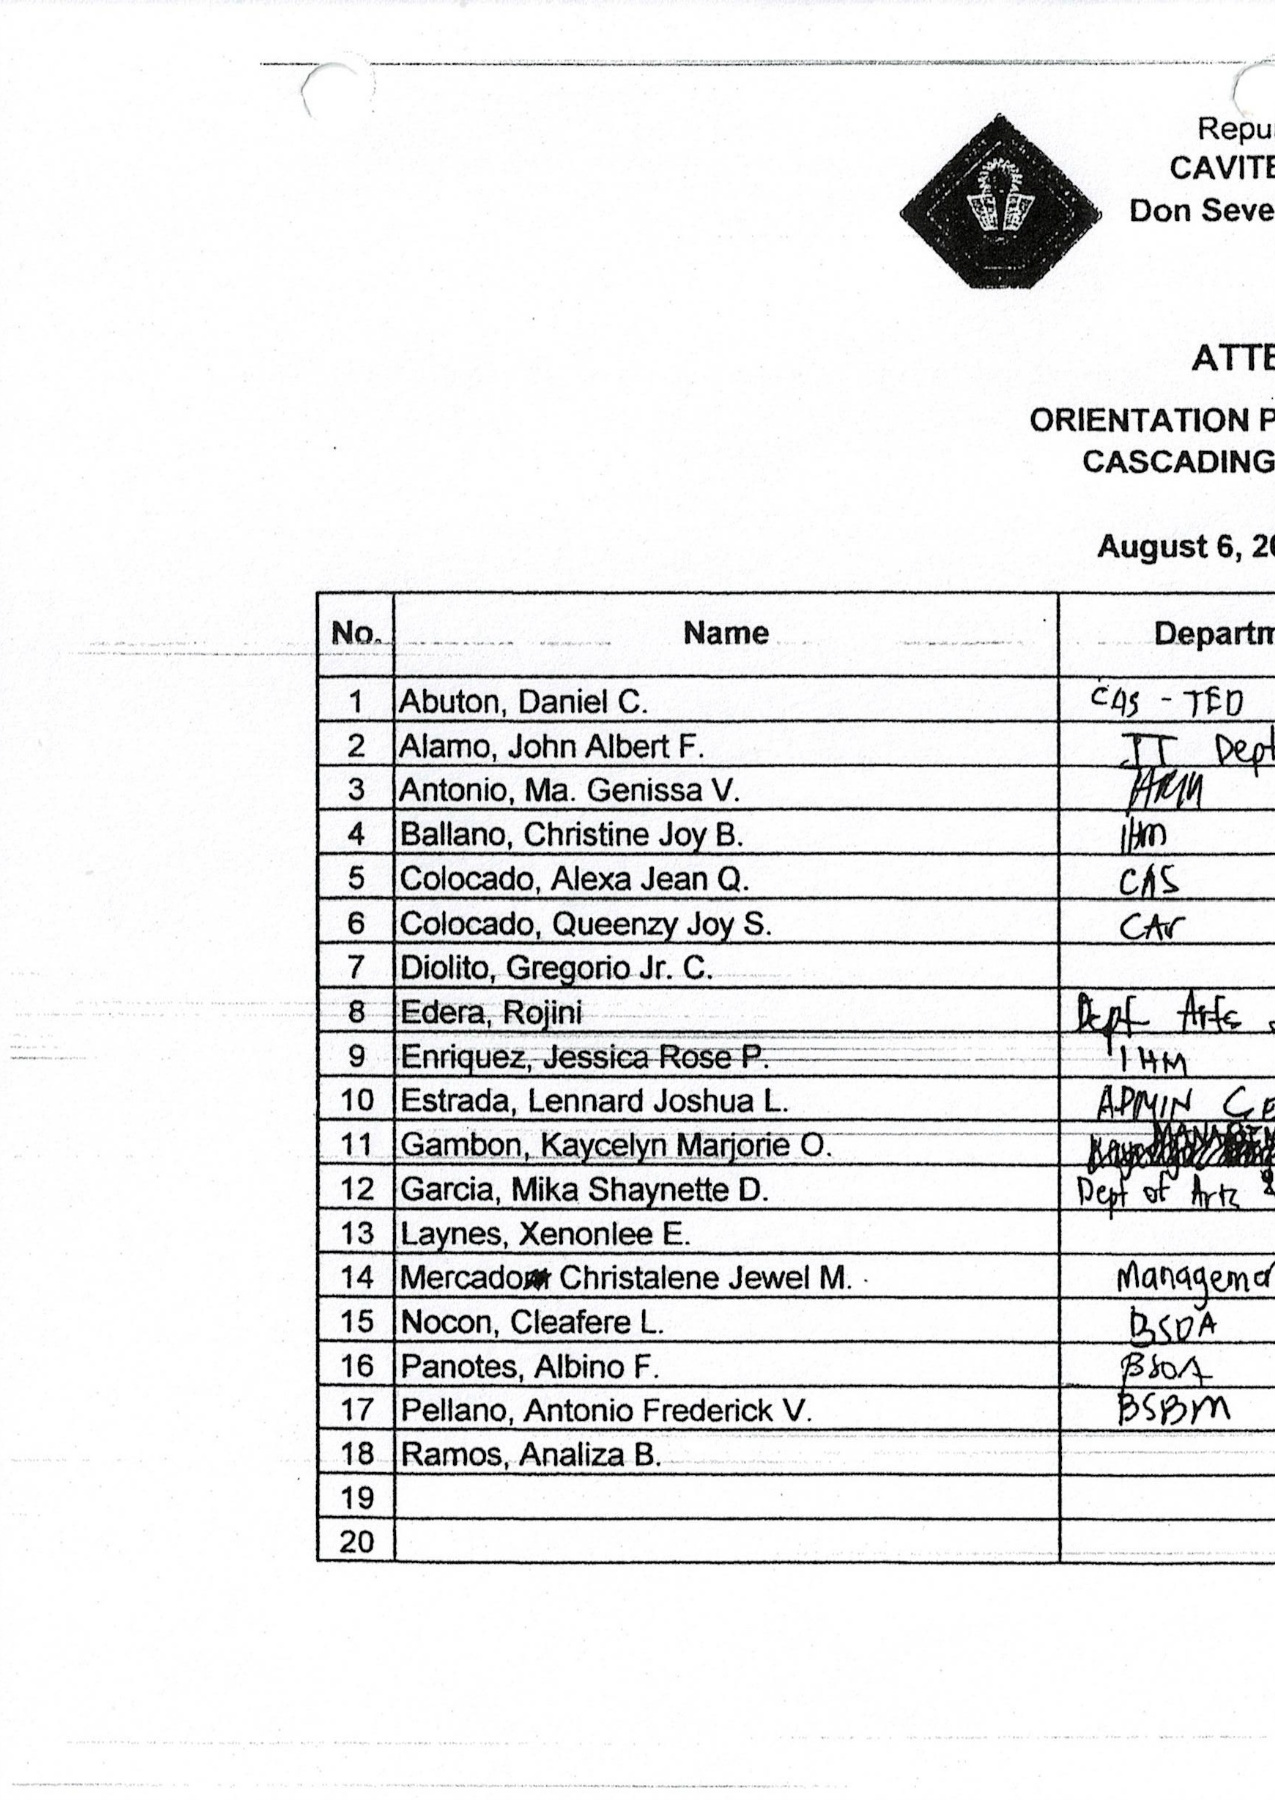 Repu
CAVITE
Don Seve
ATTE
ORIENTATION P
CASCADING
August 6, 20
No. Name Departm
1 Abuton, Daniel C. CAS - TED
2 Alamo, John Albert F. IT Dept
3 Antonio, Ma. Genissa V.
4 Ballano, Christine Joy B. IHM
5 Colocado, Alexa Jean Q. CAS
6 Colocado, Queenzy Joy S. CAS
7 Diolito, Gregorio Jr. C.
8 Edera, Rojini Dept Arts
9 Enriquez, Jessica Rose P. IHM
10 Estrada, Lennard Joshua L. ADMIN
11 Gambon, Kaycelyn Marjorie O.
12 Garcia, Mika Shaynette D. Dept of Arts &
13 Laynes, Xenonlee E.
14 Mercado Christalene Jewel M. Managem
15 Nocon, Cleafere L. BSOA
16 Panotes, Albino F. BSOA
17 Pellano, Antonio Frederick V. BSBM
18 Ramos, Analiza B.
19
20